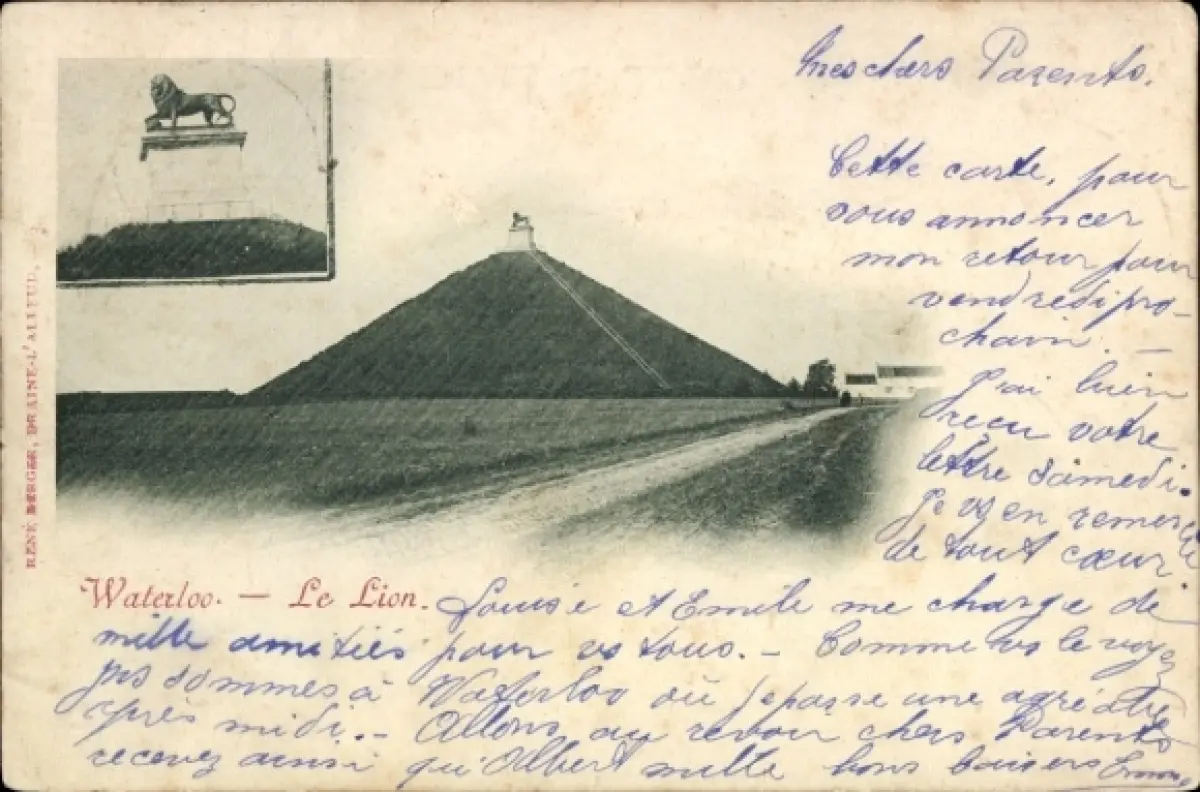 Mes chers Parents.
Cette carte, pour
vous annoncer
mon retour pour
vendredi pro-
chain. —
J'ai bien
reçu votre
lettre Samedi.
Je vs en remercie
de tout cœur.
RENÉ BERGER, BRAINE-L'ALLEUD.
Waterloo. — Le Lion.
Louise et Emile me charge de
mille amitiés pour vs tous. — Comme vs le voyez
ns sommes à Waterloo où je passe une agréable
après midi. — Allons, au revoir chers Parents
recevez ainsi qu'Albert mille bons baisers